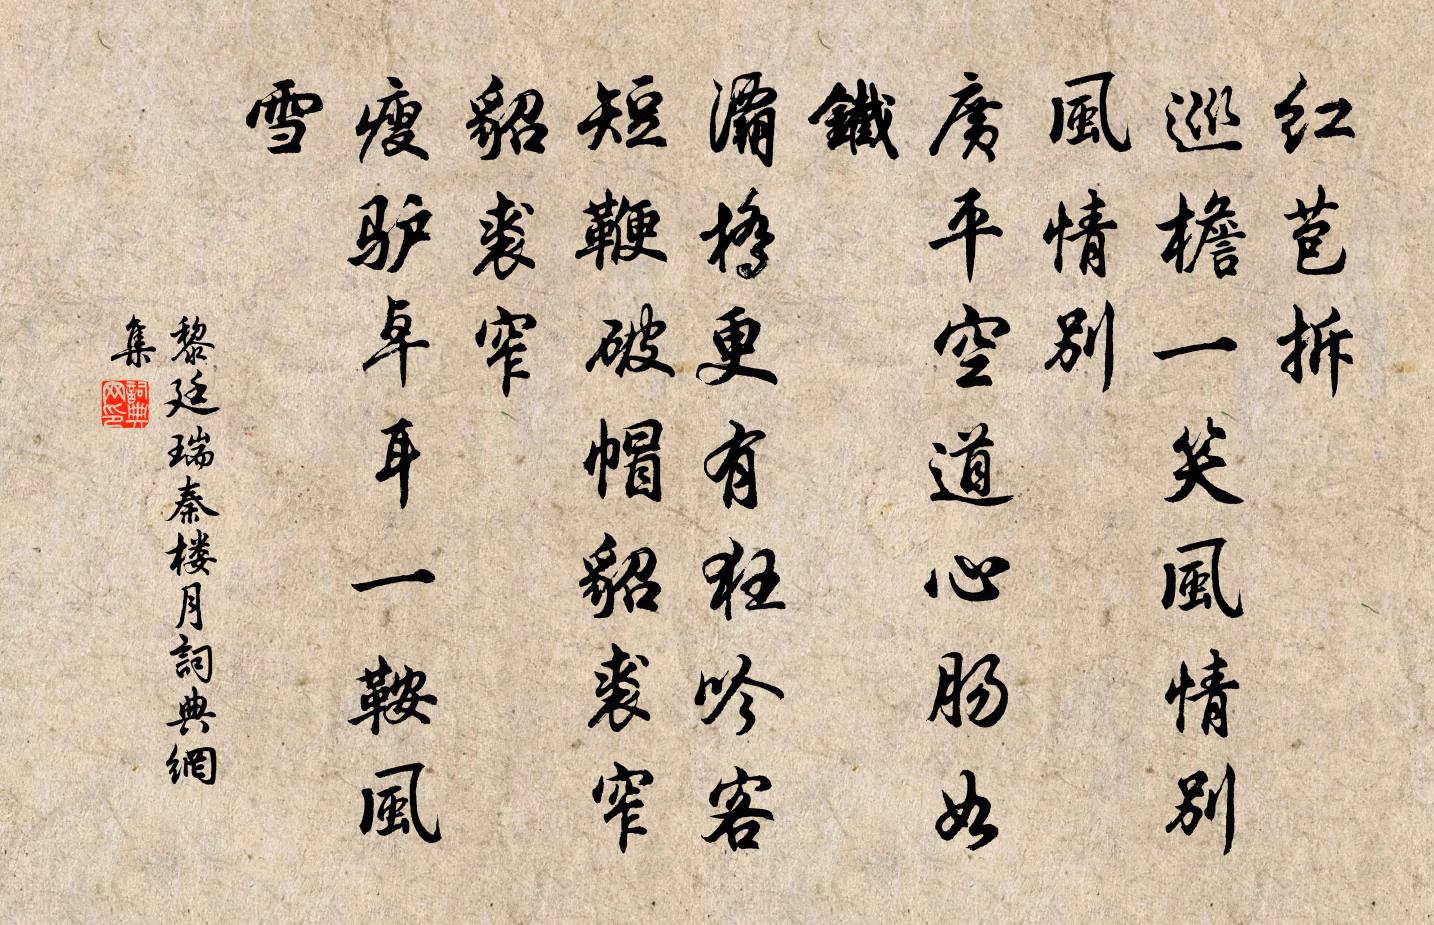 红苞拆
巡檐一笑風情别
風情别
廣平空道心肠如
鐵
灞橋更有狂吟客
短鞭破帽貂裘窄
貂裘窄
瘦驴卓耳一鞍風
雪
黎廷瑞秦楼月詞典網
集
詞典網印